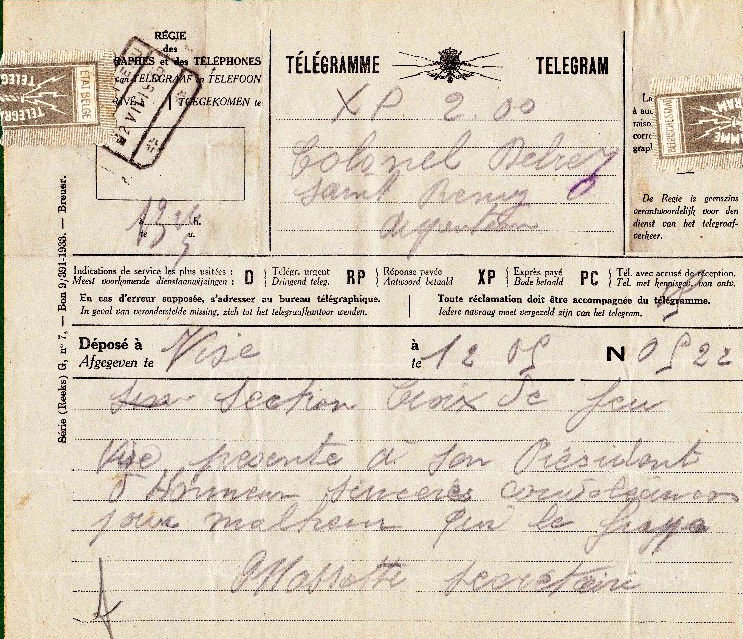 RÉGIE
des
GRAPHES et des TÉLÉPHONES
van TELEGRAAF en TELEFOON
TOEGEKOMEN te
TÉLÉGRAMME TELEGRAM
XP 2.00
Colonel Delrez
Saint Remy
à h.
te u.
La
à auc
raiso
corre
grapl
De Regie is geenszins
verantwoordelijk voor den
dienst van het telegraaf-
verkeer.
TELEG
ETAT BELGE
Indications de service les plus usitées : D Télégr. urgent RP Réponse payée XP Exprès payé PC Tél. avec accusé de réception.
Meest voorkomende dienstaanwijzingen : Dringend teleg. Antwoord betaald Bode betaald Tel. met kennisgev. van ontv.
En cas d'erreur supposée, s'adresser au bureau télégraphique. Toute réclamation doit être accompagnée du télégramme.
In geval van veronderstelde missing, zich tot het telegraafkantoor wenden. Iedere navraag moet vergezeld zijn van het telegram.
Déposé à Visé à 12 05 N 0522
Afgegeven te te
Section Croix de feu
Visé présente à son Président
d'Honneur sincères condoléances
pour malheur qui le frappe
Massotte secrétaire
Série (Reeks) G, n° 7. — Bon 9/391-1933. — Breuer.